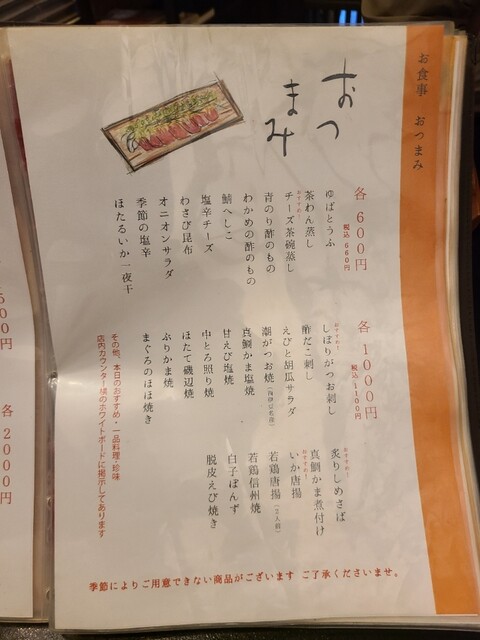 お食事 おつまみ
おつまみ
各600円
税込660円
ゆばとうふ
茶わん蒸し
おすすめ!
チーズ茶碗蒸し
青のり酢のもの
わかめの酢のもの
鯖へしこ
塩辛チーズ
わさび昆布
オニオンサラダ
季節の塩辛
ほたるいか一夜干
各1000円
税込1100円
おすすめ!
しぼりがつお刺し
酢だこ刺し
えびと胡瓜サラダ
潮がつお焼(西伊豆名産)
真鯛かま塩焼
甘えび塩焼
中とろ照り焼
ほたて磯辺焼
ぶりかま焼
まぐろのほほ焼き
おすすめ!
炙りしめさば
真鯛かま煮付け
おすすめ!
いか唐揚
若鶏唐揚(2人前)
若鶏信州焼
白子ぽんず
脱皮えび焼き
その他、本日のおすすめ・一品料理・珍味
店内カウンター横のホワイトボードに掲示してあります
季節によりご用意できない商品がございます ご了承くださいませ。
500円
各2000円